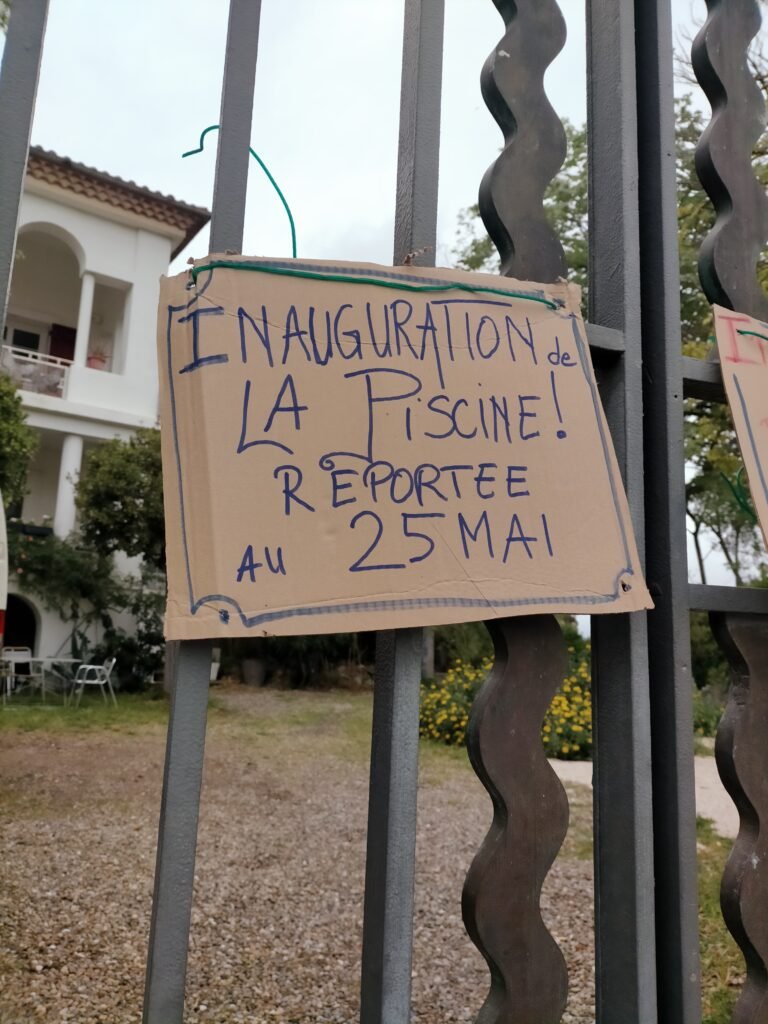 INAUGURATION de
LA PISCINE!
REPORTEE
AU 25 MAI
I